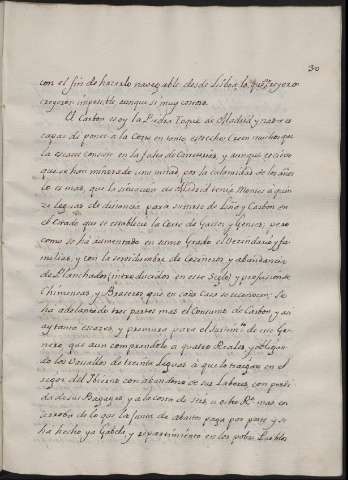 30
con el fin de hacerlo navegable desde Lisboa, lo
creyeron imposible, aunque si muy costoso.
El Carbon es oy la Piedra Toque de Madrid y
capaz de poner a la Corte en tanto estrecho; Creen muchos que
la escasez consiste en la falta de Carreteros, y aunque es cierto
que se han minorado una mitad, por la calamidad de los años
lo es mas, que la situacion de Madrid tenia Montes a quin
ze leguas de distancia para surtirse de Leña y Carbon en
el Estado que se estableció la Corte de Gastos y Gentes; pero
como se ha aumentado en sumo Grado el Vezindario y fa
milias, y con la servidumbre de Cozineros y abundancia
de Planchados (introducidos en este Siglo) y profusion de
Chimeneas, y Braseros que en cada Casa se encienden; Se
ha adelantado tres partes mas el Consumo de Carbon, y si
ay tanta escasez, y premura para el surtim.to de este Ge
nero, que aun comprandolo a quatro Reales, y obligan
do los Vasallos de treinta Leguas a que lo traygan en el
rigor del Ibierno con abandono de sus Labores, con perdi
da de sus Bagages y a la costa de tres, u ocho R.s mas en
arroba de lo que la Junta de abastos paga por porte y se
ha hecho ya Gabela y repartimiento en los pobres Pueblos